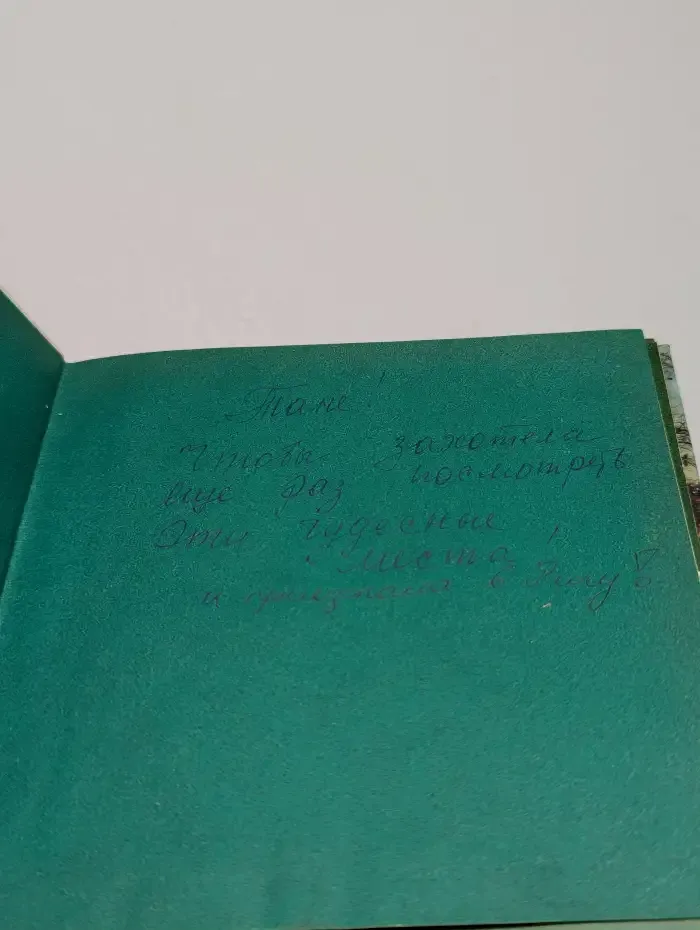 Тане!
Чтобы захотела
еще раз посмотреть
Эти чудесные
места,
и приезжала в Ригу!